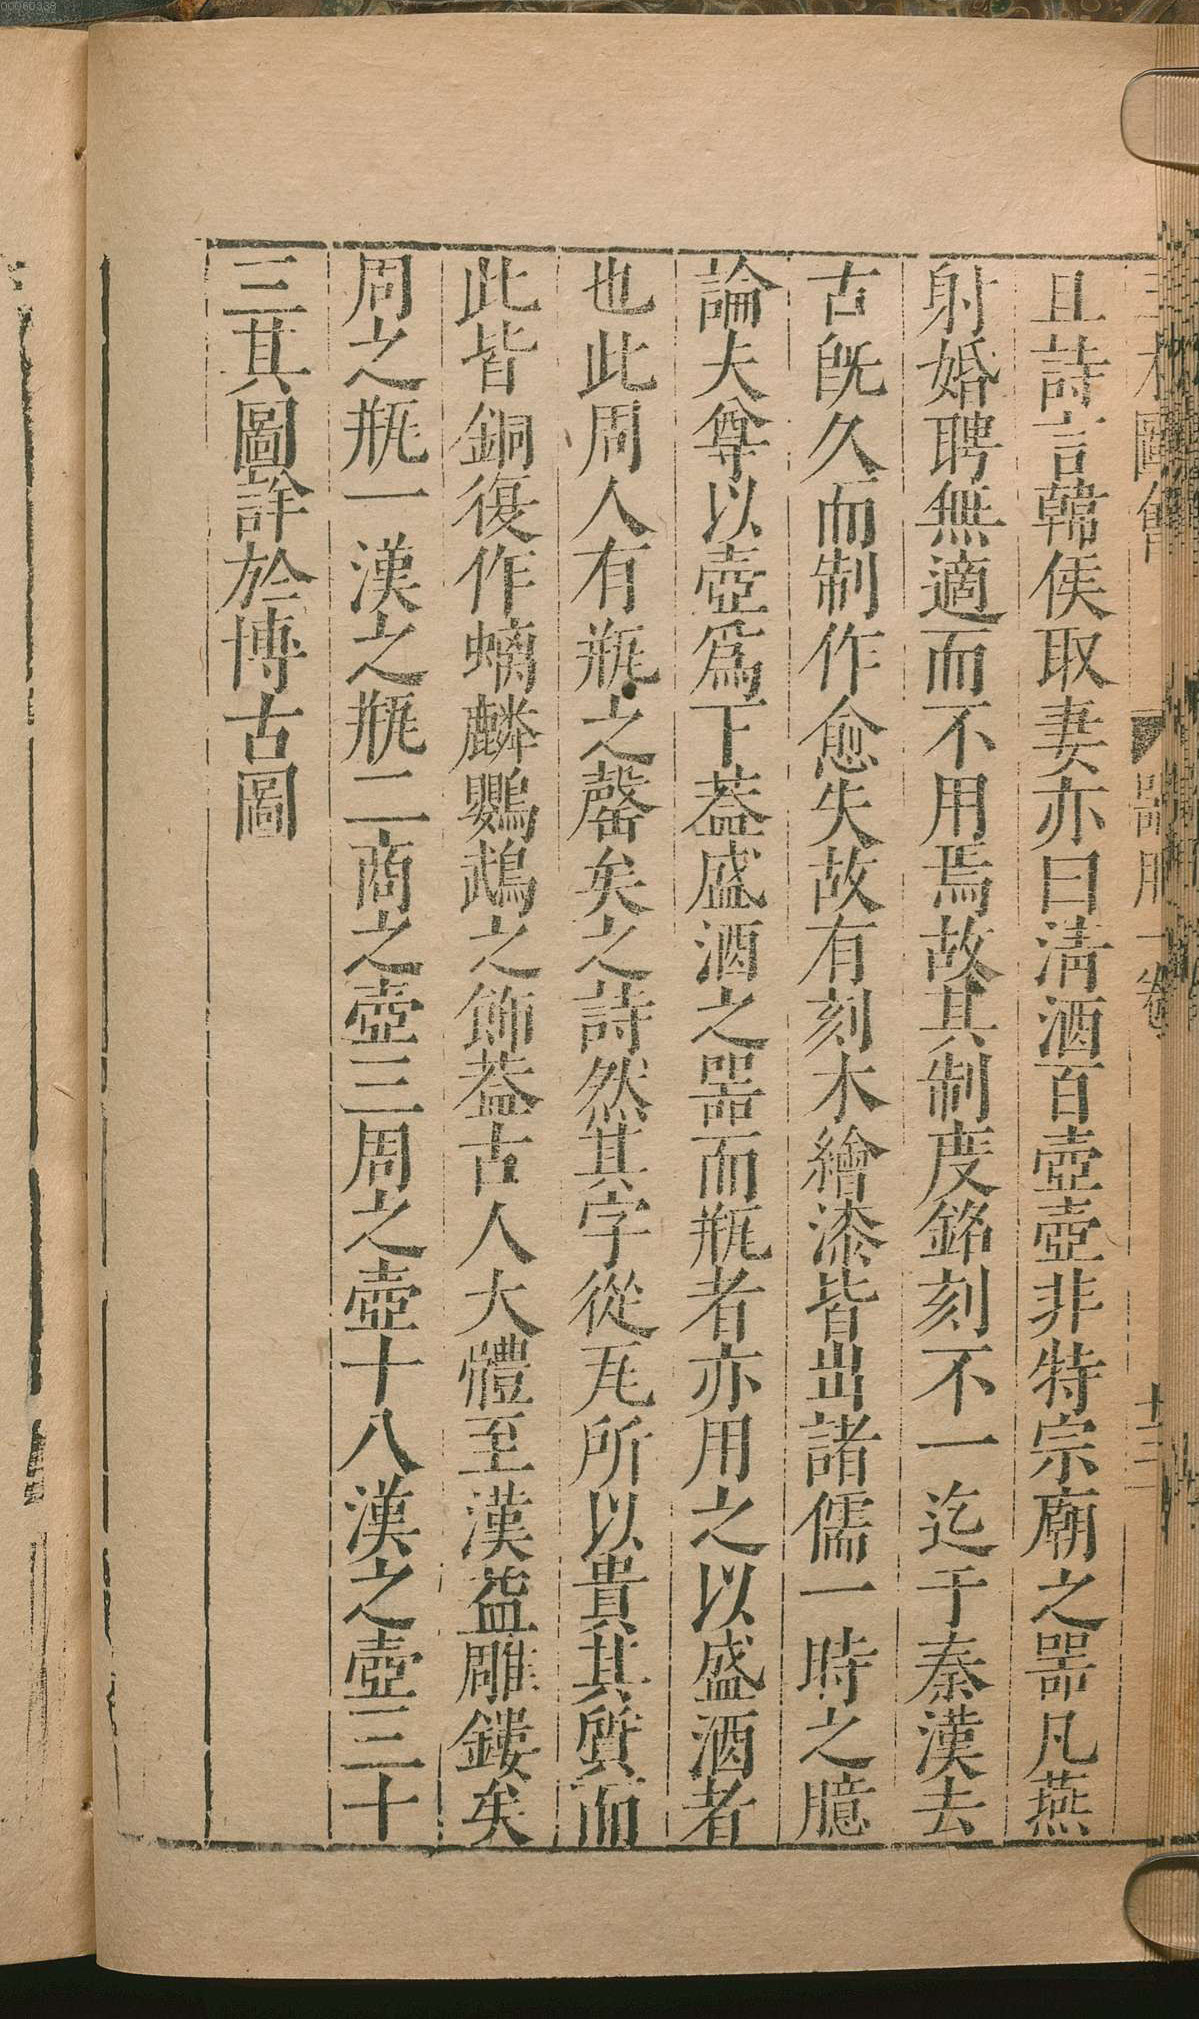 且詩言韓侯取妻亦曰淸酒百壺壺非特宗廟之噐凡燕
射婚聘無適而不用焉故其制度銘刻不一迄于秦漢去
古旣久而制作愈失故有刻木繪漆皆出諸儒一時之臆
論夫尊以壺爲下葢盛酒之噐而瓶者亦用之以盛酒者
也此周人有瓶之罄矣之詩然其字從瓦所以貴其質而
此皆銅復作螭麟鸚鵡之飾葢古人大體至漢益雕鏤矣
周之瓶一漢之瓶二商之壺三周之壺十八漢之壺三十
三其圖詳於博古圖